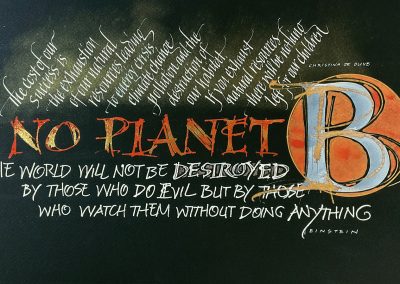 The cost of our
success is
the exhaustion
of our natural
resources leading
to energy crisis
climate change
pollution and the
destruction of
our habitat
If you exhaust
natural resources
there will be nothing
left for our children
CHRISTINA DE
NO PLANET B
HE WORLD WILL NOT BE DESTROYED
BY THOSE WHO DO EVIL BUT BY THOSE
WHO WATCH THEM WITHOUT DOING ANYTHING
EINSTEIN